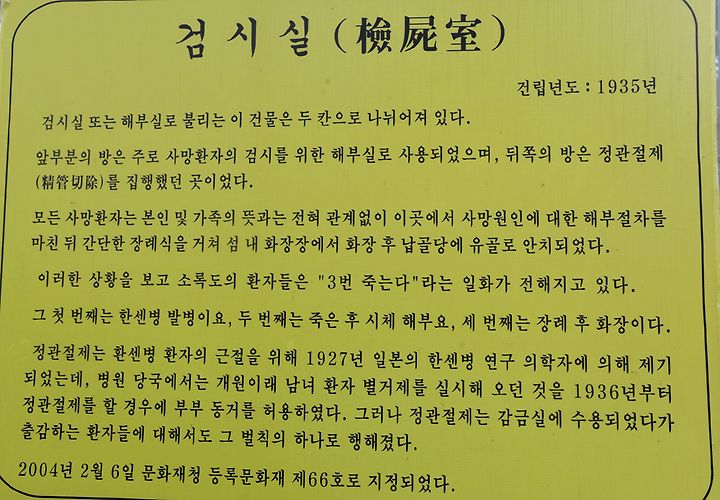 검시실(檢屍室)
건립년도 : 1935년
검시실 또는 해부실로 불리는 이 건물은 두 칸으로 나뉘어져 있다.
앞부분의 방은 주로 사망환자의 검시를 위한 해부실로 사용되었으며, 뒤쪽의 방은 정관절제
(精管切除)를 집행했던 곳이었다.
모든 사망환자는 본인 및 가족의 뜻과는 전혀 관계없이 이곳에서 사망원인에 대한 해부절차를
마친 뒤 간단한 장례식을 거쳐 섬 내 화장장에서 화장 후 납골당에 유골로 안치되었다.
이러한 상황을 보고 소록도의 환자들은 "3번 죽는다"라는 일화가 전해지고 있다.
그 첫 번째는 한센병 발병이요, 두 번째는 죽은 후 시체 해부요, 세 번째는 장례 후 화장이다.
정관절제는 환센병 환자의 근절을 위해 1927년 일본의 한센병 연구 의학자에 의해 제기
되었는데, 병원 당국에서는 개원이래 남녀 환자 별거제를 실시해 오던 것을 1936년부터
정관절제를 할 경우에 부부 동거를 허용하였다. 그러나 정관절제는 감금실에 수용되었다가
출감하는 환자들에 대해서도 그 벌칙의 하나로 행해졌다.
2004년 2월 6일 문화재청 등록문화재 제66호로 지정되었다.